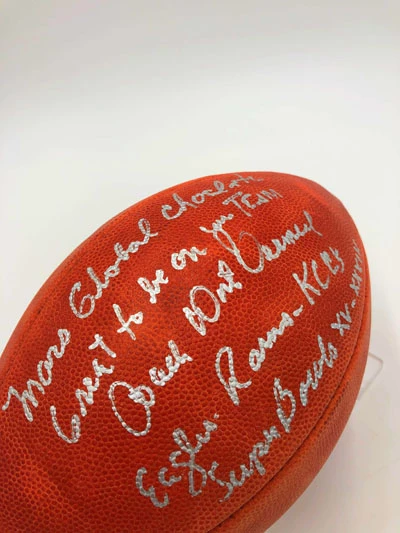 Mars Global Chocolate
Great to be on your TEAM
Coach Dick Vermeil
Eagles - Rams - KCefs
Super Bowls XV-XXXIV